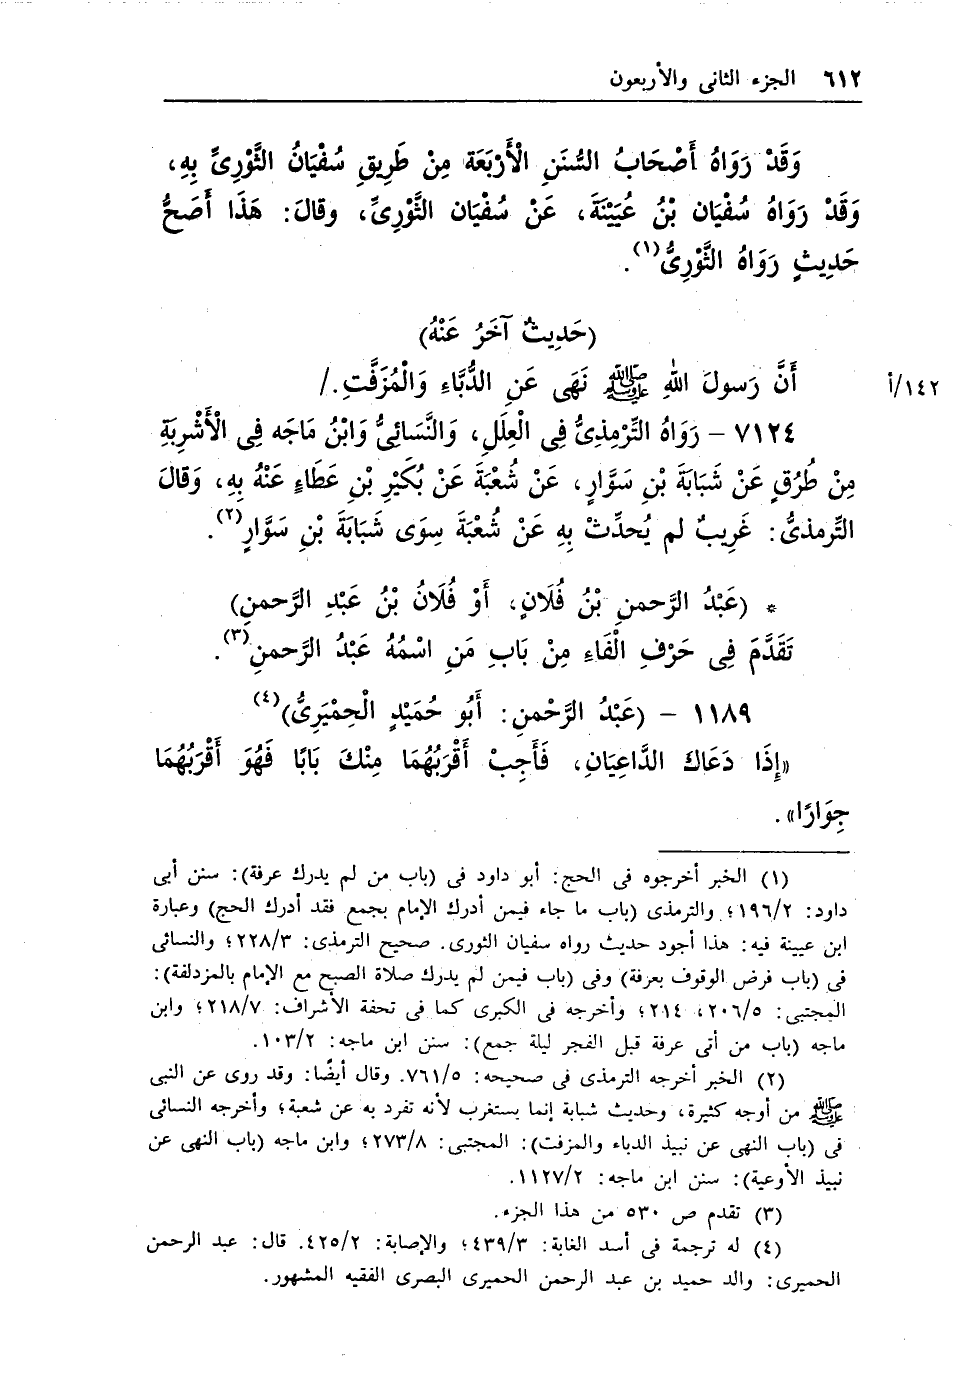 ٦١٢ الجزء الثانى والأربعون
وَقَدْ رَوَاهُ أَصْحَابُ السُّنَنِ الْأَرْبَعَة مِنْ طَرِيقِ سُفْيَانُ الثَّوْرِىِّ بِهِ،
وَقَدْ رَوَاهُ سُفْيَان بْنُ عُيَيْنَةَ، عَنْ سُفْيَان الثَّوْرِىِّ، وقالَ: هَذَا أَصَحُّ
حَدِيثٍ رَوَاهُ الثَّوْرِىُّ(١).
(حَدِيثٌ آخَرُ عَنْهُ)
أَنَّ رَسولَ اللهِ ﷺ نَهَى عَنِ الدُّبَّاءِ وَالْمُزَفَّتِ./
١٤٢/أ
٧١٢٤ – رَوَاهُ التِّرْمِذِىُّ فِى الْعِلَلِ، وَالنَّسَائِىُّ وَابْنُ مَاجَه فِى الْأَشْرِبَةِ
مِنْ طُرُقٍ عَنْ شَبَابَةَ بْنِ سَوَّارٍ، عَنْ شُعْبَةَ عَنْ بُكَيْرِ بْنِ عَطَاءٍ عَنْهُ بِهِ، وَقَالَ
التِّرمذىُّ: غَرِيبٌ لم يُحدِّثْ بِهِ عَنْ شُعْبَةَ سِوَى شَبَابَةَ بْنِ سَوَّارٍ(٢).
* (عَبْدُ الرَّحمنِ بْنُ فُلَانٍ، أَوْ فُلَانُ بْنُ عَبْدِ الرَّحمنِ)
تَقَدَّمَ فِى حَرْفِ الْفَاءِ مِنْ بَابِ مَنِ اسْمُهُ عَبْدُ الرَّحمنِ(٣).
١١٨٩ – (عَبْدُ الرَّحْمنِ: أَبُو حُمَيْدٍ الْحِمْيَرِىُّ)(٤)
«إِذَا دَعَاكَ الدَّاعِيَانِ، فَأَجِبْ أَقْرَبُهُمَا مِنْكَ بَابًا فَهُوَ أَقْرَبُهُمَا
جِوَارًا».
(١) الخبر أخرجوه فى الحج: أبو داود فى (باب من لم يدرك عرفة): سنن أبى
داود: ١٩٦/٢؛ والترمذى (باب ما جاء فيمن أدرك الإمام بجمع فقد أدرك الحج) وعبارة
ابن عيينة فيه: هذا أجود حديث رواه سفيان الثورى. صحيح الترمذى: ٢٢٨/٣؛ والنسائى
فى (باب فرض الوقوف بعرفة) وفى (باب فيمن لم يدرك صلاة الصبح مع الإمام بالمزدلفة):
المجتبى: ٢٠٦/٥، ٢١٤؛ وأخرجه فى الكبرى كما فى تحفة الأشراف: ٢١٨/٧؛ وابن
ماجه (باب من أتى عرفة قبل الفجر ليلة جمع): سنن ابن ماجه: ١٠٣/٢.
(٢) الخبر أخرجه الترمذى فى صحيحه: ٧٦١/٥. وقال أيضًا: وقد روى عن النبى
ﷺ من أوجه كثيرة، وحديث شبابة إنما يستغرب لأنه تفرد به عن شعبة؛ وأخرجه النسائى
فى (باب النهى عن نبيذ الدباء والمزفت): المجتبى: ٢٧٣/٨؛ وابن ماجه (باب النهى عن
نبيذ الأوعية): سنن ابن ماجه: ١١٢٧/٢.
(٣) تقدم ص ٥٣٠ من هذا الجزء.
(٤) له ترجمة فى أسد الغابة: ٤٣٩/٣؛ والإصابة: ٤٢٥/٢. قال: عبد الرحمن
الحميرى: والد حميد بن عبد الرحمن الحميرى البصرى الفقيه المشهور.